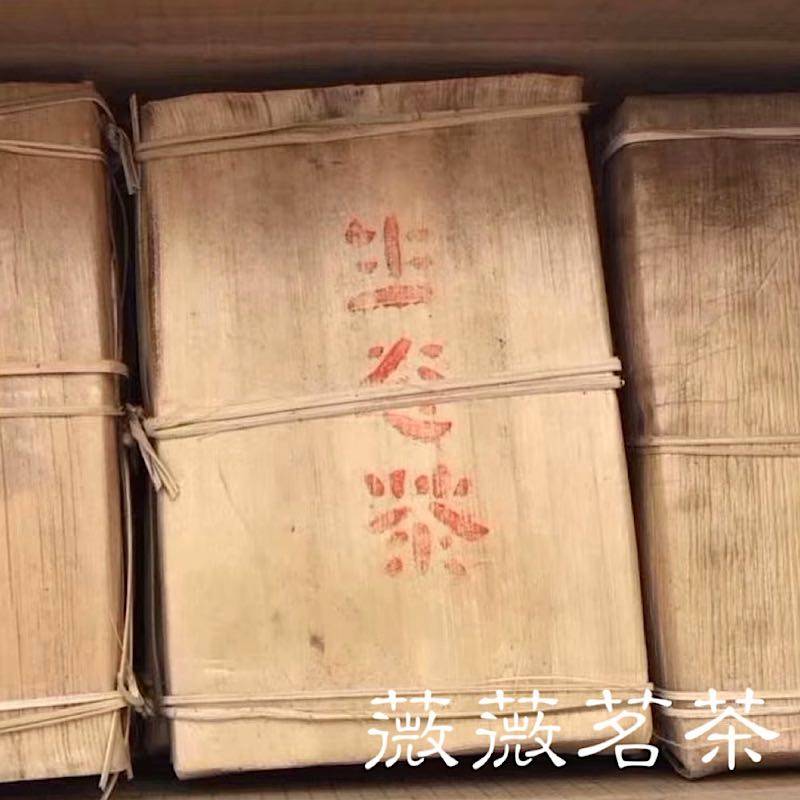 生
茶
薇薇茗茶